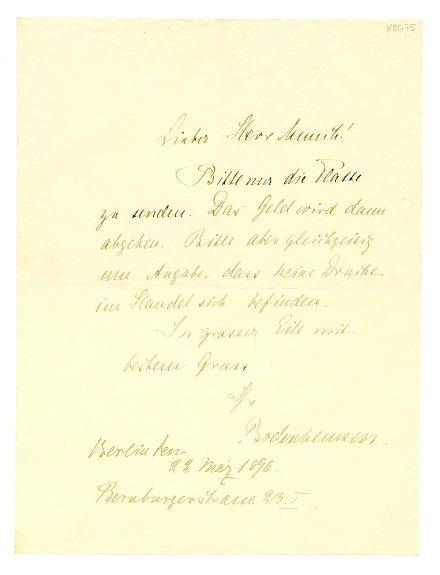 K2075
Lieber Herr Munch!
Bitte nur die Platte
zu senden. Das Geld wird dann
abgehen. Bitte aber gleichzeitig
um Angabe, dass keine Drucke
im Handel sich befinden.
In grosser Eile mit
bestem Gruss
Ihr
Bodenhausen.
Berlin den
22 März 1896.
Bernburgerstrasse 23. I